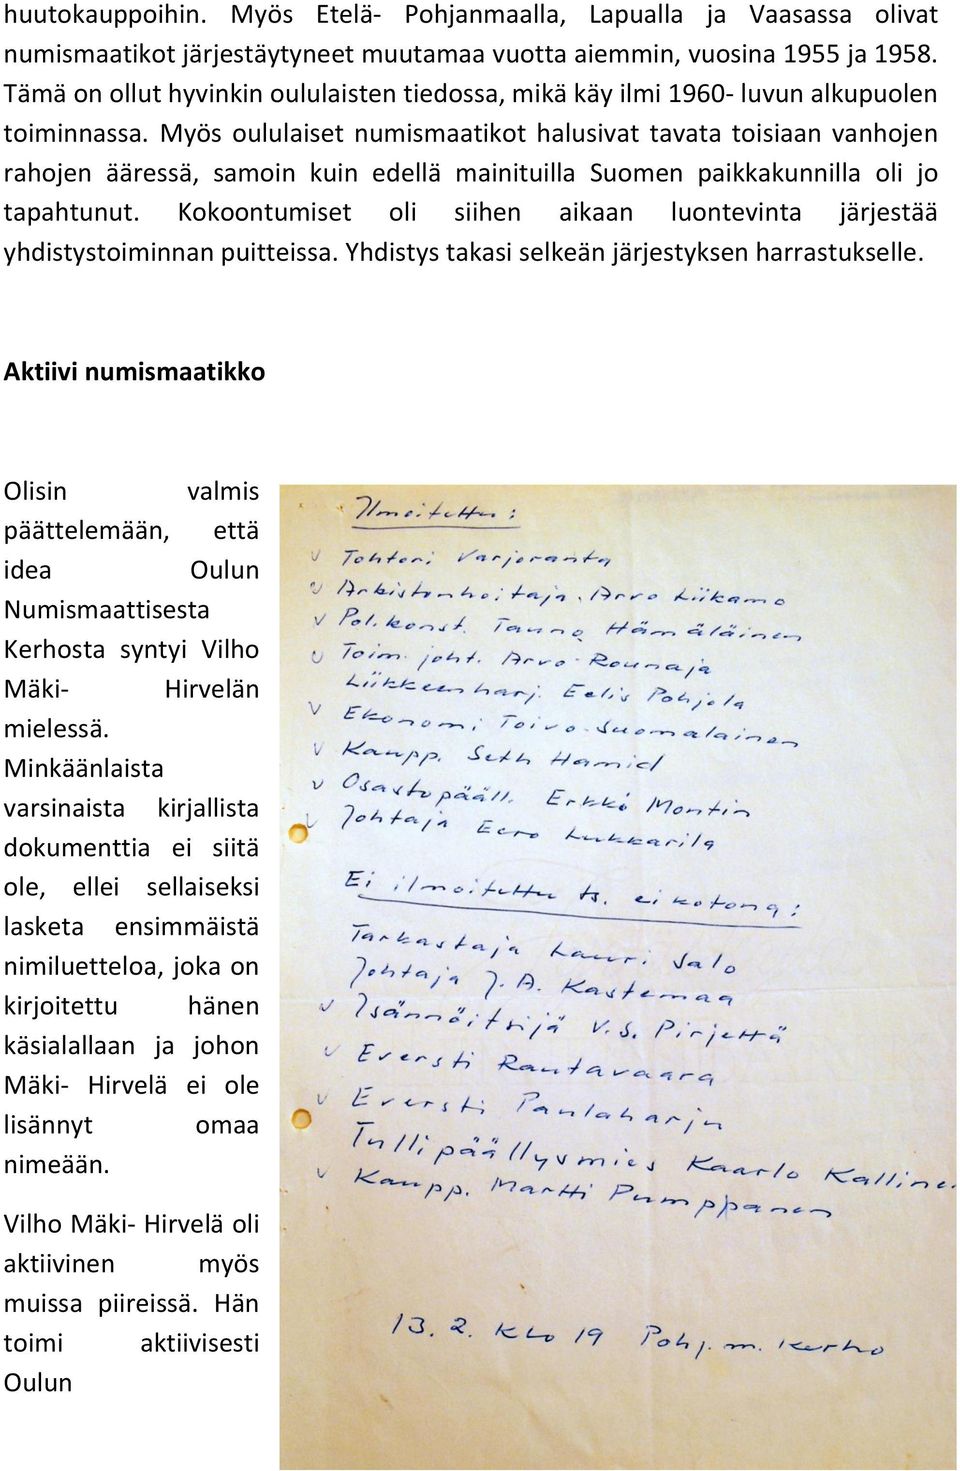 huutokauppoihin. Myös Etelä- Pohjanmaalla, Lapualla ja Vaasassa olivat
numismaatikot järjestäytyneet muutamaa vuotta aiemmin, vuosina 1955 ja 1958.
Tämä on ollut hyvinkin oululaisten tiedossa, mikä käy ilmi 1960- luvun alkupuolen
toiminnassa. Myös oululaiset numismaatikot halusivat tavata toisiaan vanhojen
rahojen ääressä, samoin kuin edellä mainituilla Suomen paikkakunnilla oli jo
tapahtunut. Kokoontumiset oli siihen aikaan luontevinta järjestää
yhdistystoiminnan puitteissa. Yhdistys takasi selkeän järjestyksen harrastukselle.
Aktiivi numismaatikko
Olisin valmis
päättelemään, että
idea Oulun
Numismaattisesta
Kerhosta syntyi Vilho
Mäki- Hirvelän
mielessä.
Minkäänlaista
varsinaista kirjallista
dokumenttia ei siitä
ole, ellei sellaiseksi
lasketa ensimmäistä
nimiluetteloa, joka on
kirjoitettu hänen
käsialallaan ja johon
Mäki- Hirvelä ei ole
lisännyt omaa
nimeään.
Vilho Mäki- Hirvelä oli
aktiivinen myös
muissa piireissä. Hän
toimi aktiivisesti
Oulun
Ilmoitettu:
v Tohtori Varjoranta
v Arkistonhoitaja Arvo Liikamo
v Pol.konst. Tauno Hämäläinen
v Toim. joht. Arvo Rounaja
Liikkeenharj. Eelis Pohjola
v Ekonomi Toivo Suomalainen
v Kaupp. Seth Hamid
v Osastopääll. Erkki Montin
v Johtaja Eero Lukkarila
Ei ilmoitettu ts. ei kotona:
Tarkastaja Lauri Salo
Johtaja J.A. Kastemaa
v Isännöitsijä V.S. Pirjettä
v Eversti Rantavaara
v Eversti Paulaharju
Tullipäällysmies Kaarlo Kalline.
v Kaupp. Martti Pumppanen
13.2. Klo 19 Pohj.m. Kerho